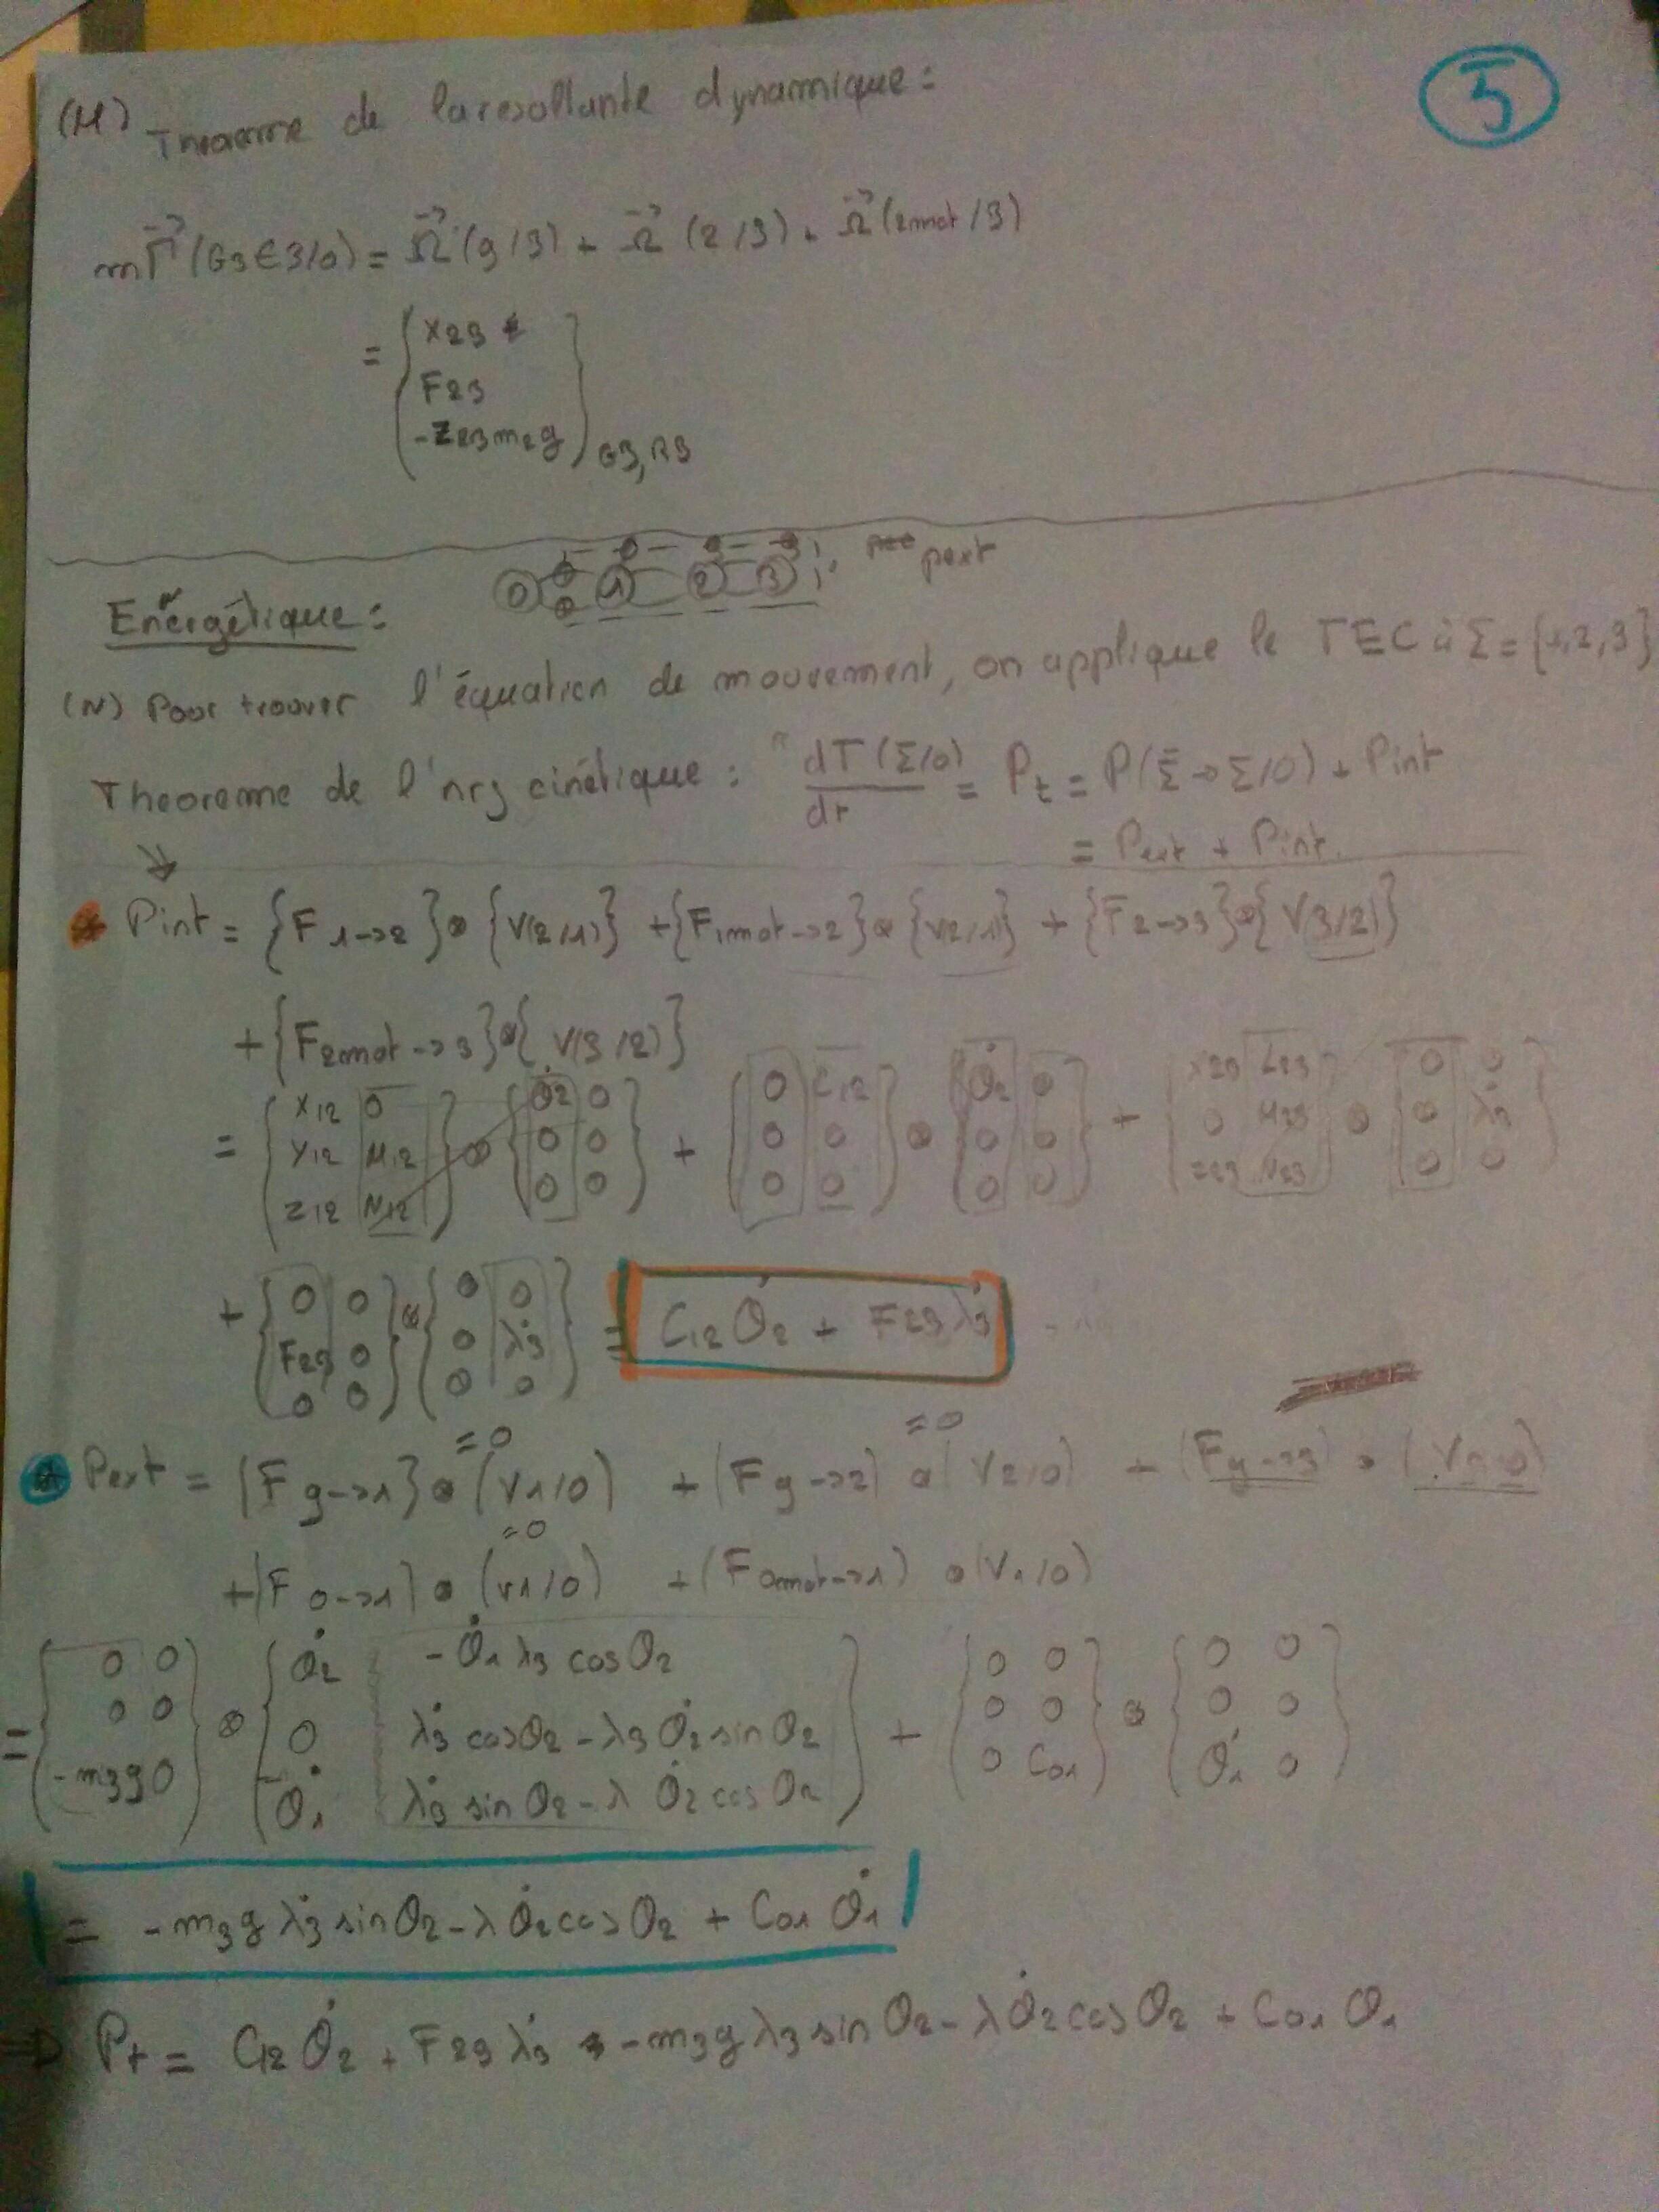 5
(M) Theoreme de la resoltante dynamique :
m Γ⃗ (G3 ∈ 3/0) = Ω⃗ (g/3) + Ω⃗ (2/3) + Ω⃗ (2mot/3)
= { X23
F23
-Z23 m2g } G3, R3
0 1 2 3 pext
Energétique :
(N) Pour trouver l'équation de mouvement, on applique le TEC à Σ = {1,2,3}
Theoreme de l'nrj cinétique : dT(Σ/0)/dt = Pt = P(Σ̄ → Σ/0) + Pint
= Pext + Pint.
Pint = {F 1->2} ⊗ {V(2/1)} + {F1mot->2} ⊗ {V(2/1)} + {F2->3} ⊗ {V(3/2)}
+ {F2mot->3} ⊗ {V(3/2)}
= { X12 0 / Y12 M12 / Z12 N12 } ⊗ { θ̇2 0 / 0 0 / 0 0 } + { 0 C12 / 0 0 / 0 0 } ⊗ { θ̇2 0 / 0 0 / 0 0 } + { X23 L23 / 0 M23 / Z23 N23 } ⊗ { 0 0 / 0 λ̇3 / 0 0 }
+ { 0 0 / F23 0 / 0 0 } ⊗ { 0 0 / 0 λ̇3 / 0 0 } = C12 θ̇2 + F23 λ̇3
=0 =0
Pext = {F g->1} ⊗ (V1/0) + (F g->2) ⊗ (V2/0) + (F g->3) ⊗
=0
+ (F 0->1) ⊗ (V1/0) + (F0mot->1) ⊗ (V1/0)
= { 0 0 / 0 0 / -m3g 0 } ⊗ { θ̇2 -θ̇1 λ3 cos θ2 / 0 λ̇3 cos θ2 - λ3 θ̇2 sin θ2 / θ̇1 λ̇3 sin θ2 - λ θ̇2 cos θ2 } + { 0 0 / 0 0 / 0 C01 } ⊗ { 0 0 / 0 0 / θ̇1 0 }
= -m3g λ̇3 sin θ2 - λ θ̇2 cos θ2 + C01 θ̇1
=> Pt = C12 θ̇2 + F23 λ̇3 - m3g λ3 sin θ2 - λ θ̇2 cos θ2 + C01 θ1